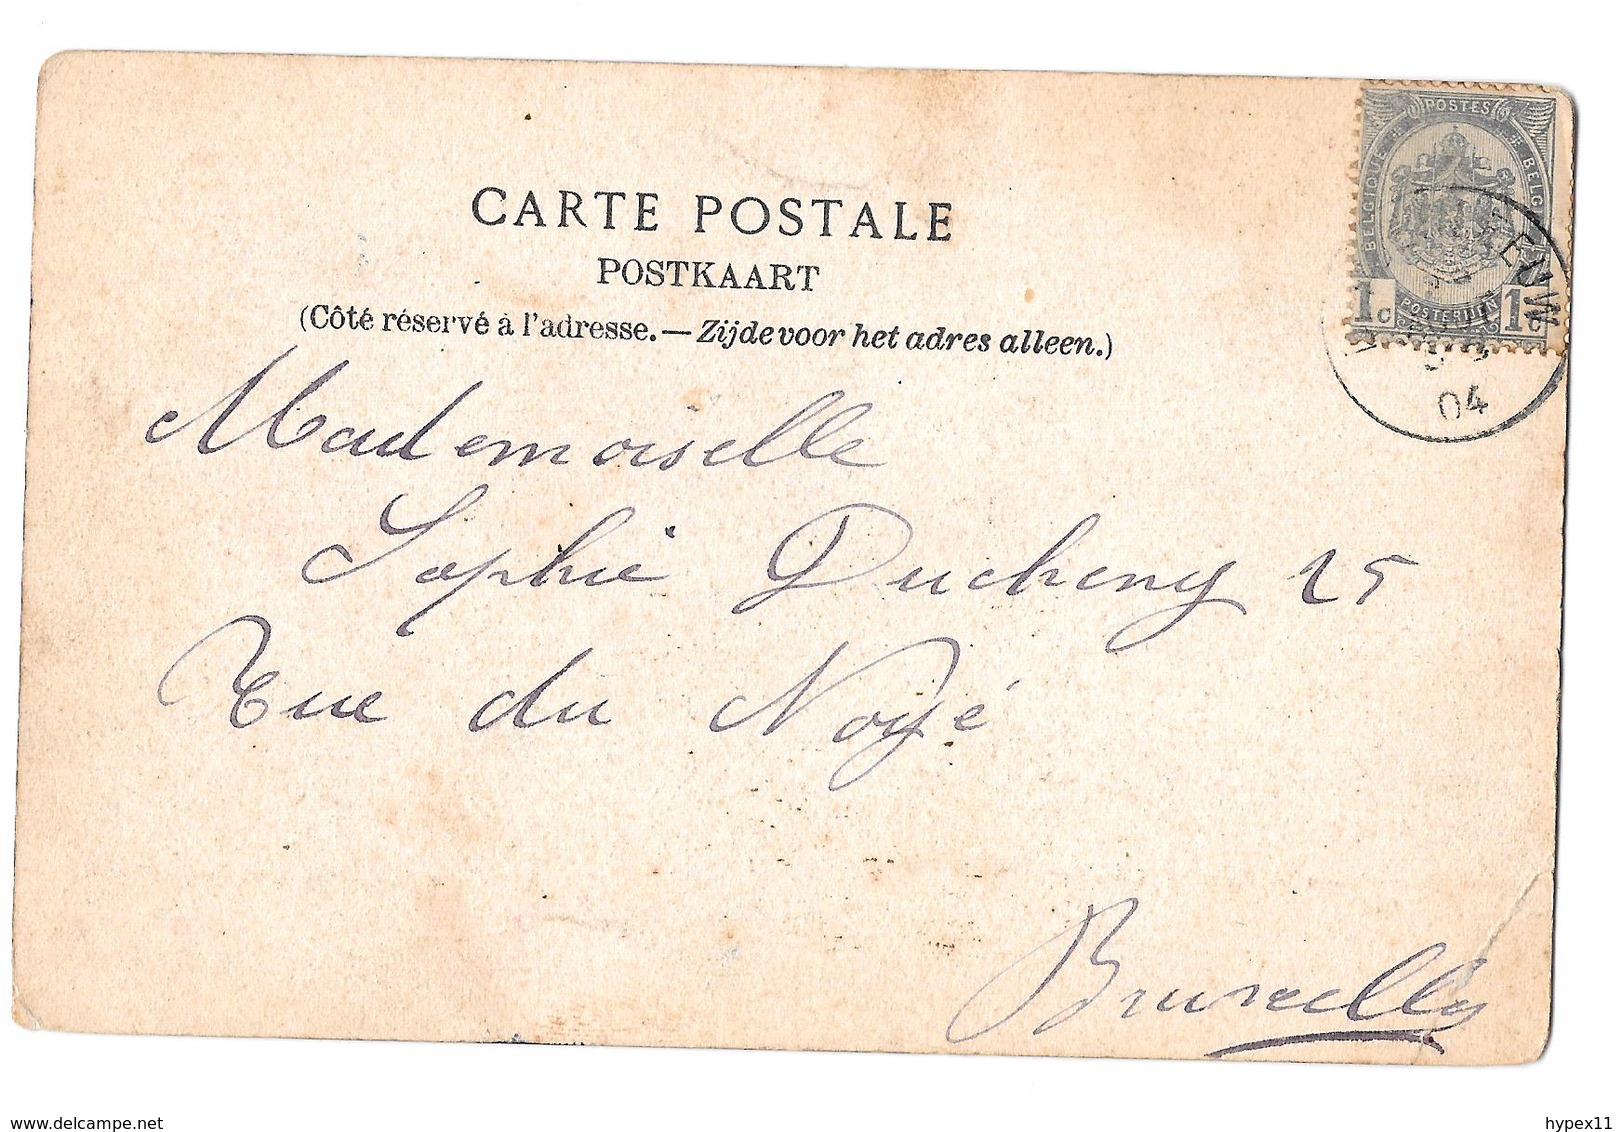 CARTE POSTALE
POSTKAART
(Côté réservé à l'adresse. — Zijde voor het adres alleen.)
POSTES
BELGIQUE
BELG
1c POSTERIJEN 1c
04
Mademoiselle
Sophie Ducheny 25
Rue du Noyé
Bruxelles
delcampe.net
hypex11